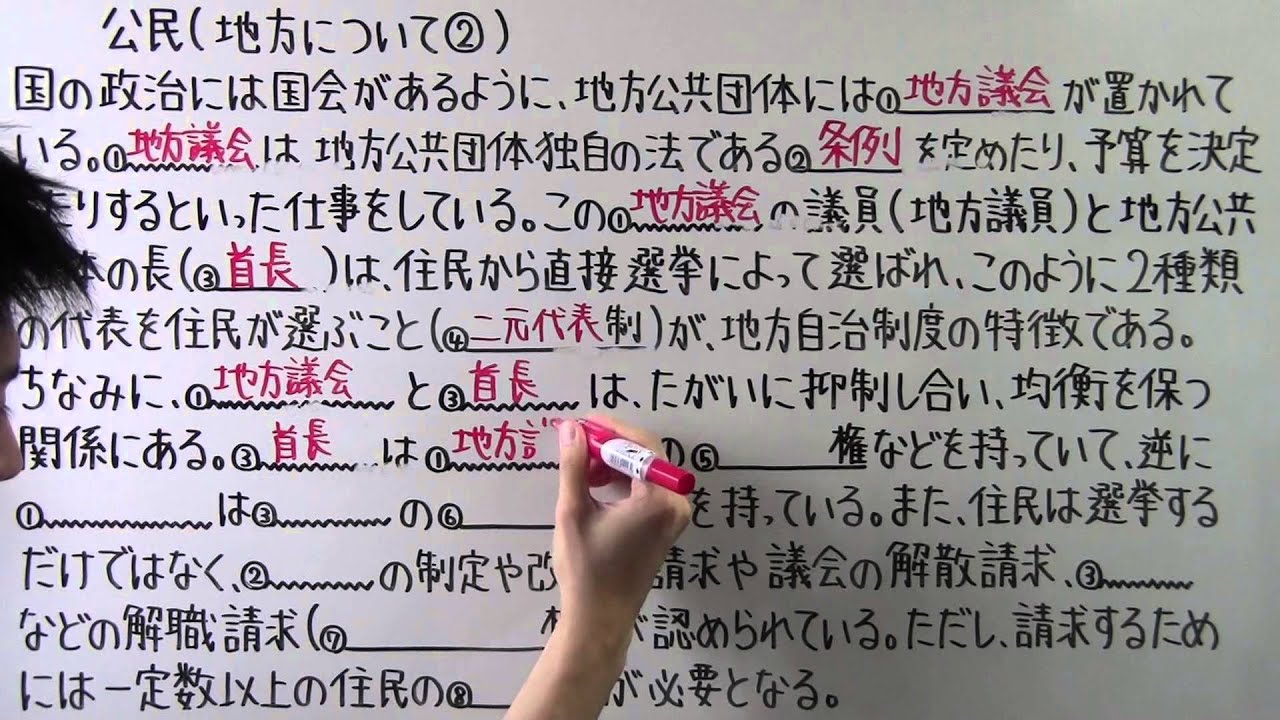 公民(地方について②)
国の政治には国会があるように、地方公共団体には①地方議会が置かれて
いる。①地方議会は地方公共団体独自の法である②条例を定めたり、予算を決定
りするといった仕事をしている。この①地方議会の議員(地方議員)と地方公共
の長(③首長)は、住民から直接選挙によって選ばれ、このように2種類
の代表を住民が選ぶこと(④二元代表制)が、地方自治制度の特徴である。
ちなみに、①地方議会と③首長は、たがいに抑制し合い、均衡を保つ
関係にある。③首長は①地方 の⑤____権などを持っていて、逆に
①____は③____の⑥____を持っている。また、住民は選挙する
だけではなく、②____の制定や改 請求や議会の解散請求、③____
などの解職請求(⑦____ が認められている。ただし、請求するため
には一定数以上の住民の⑧____が必要となる。